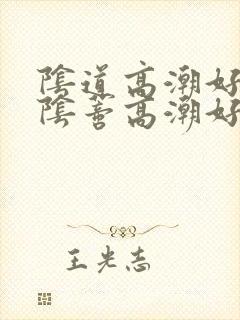 陰道高潮好
陰蒂高潮好
王光志